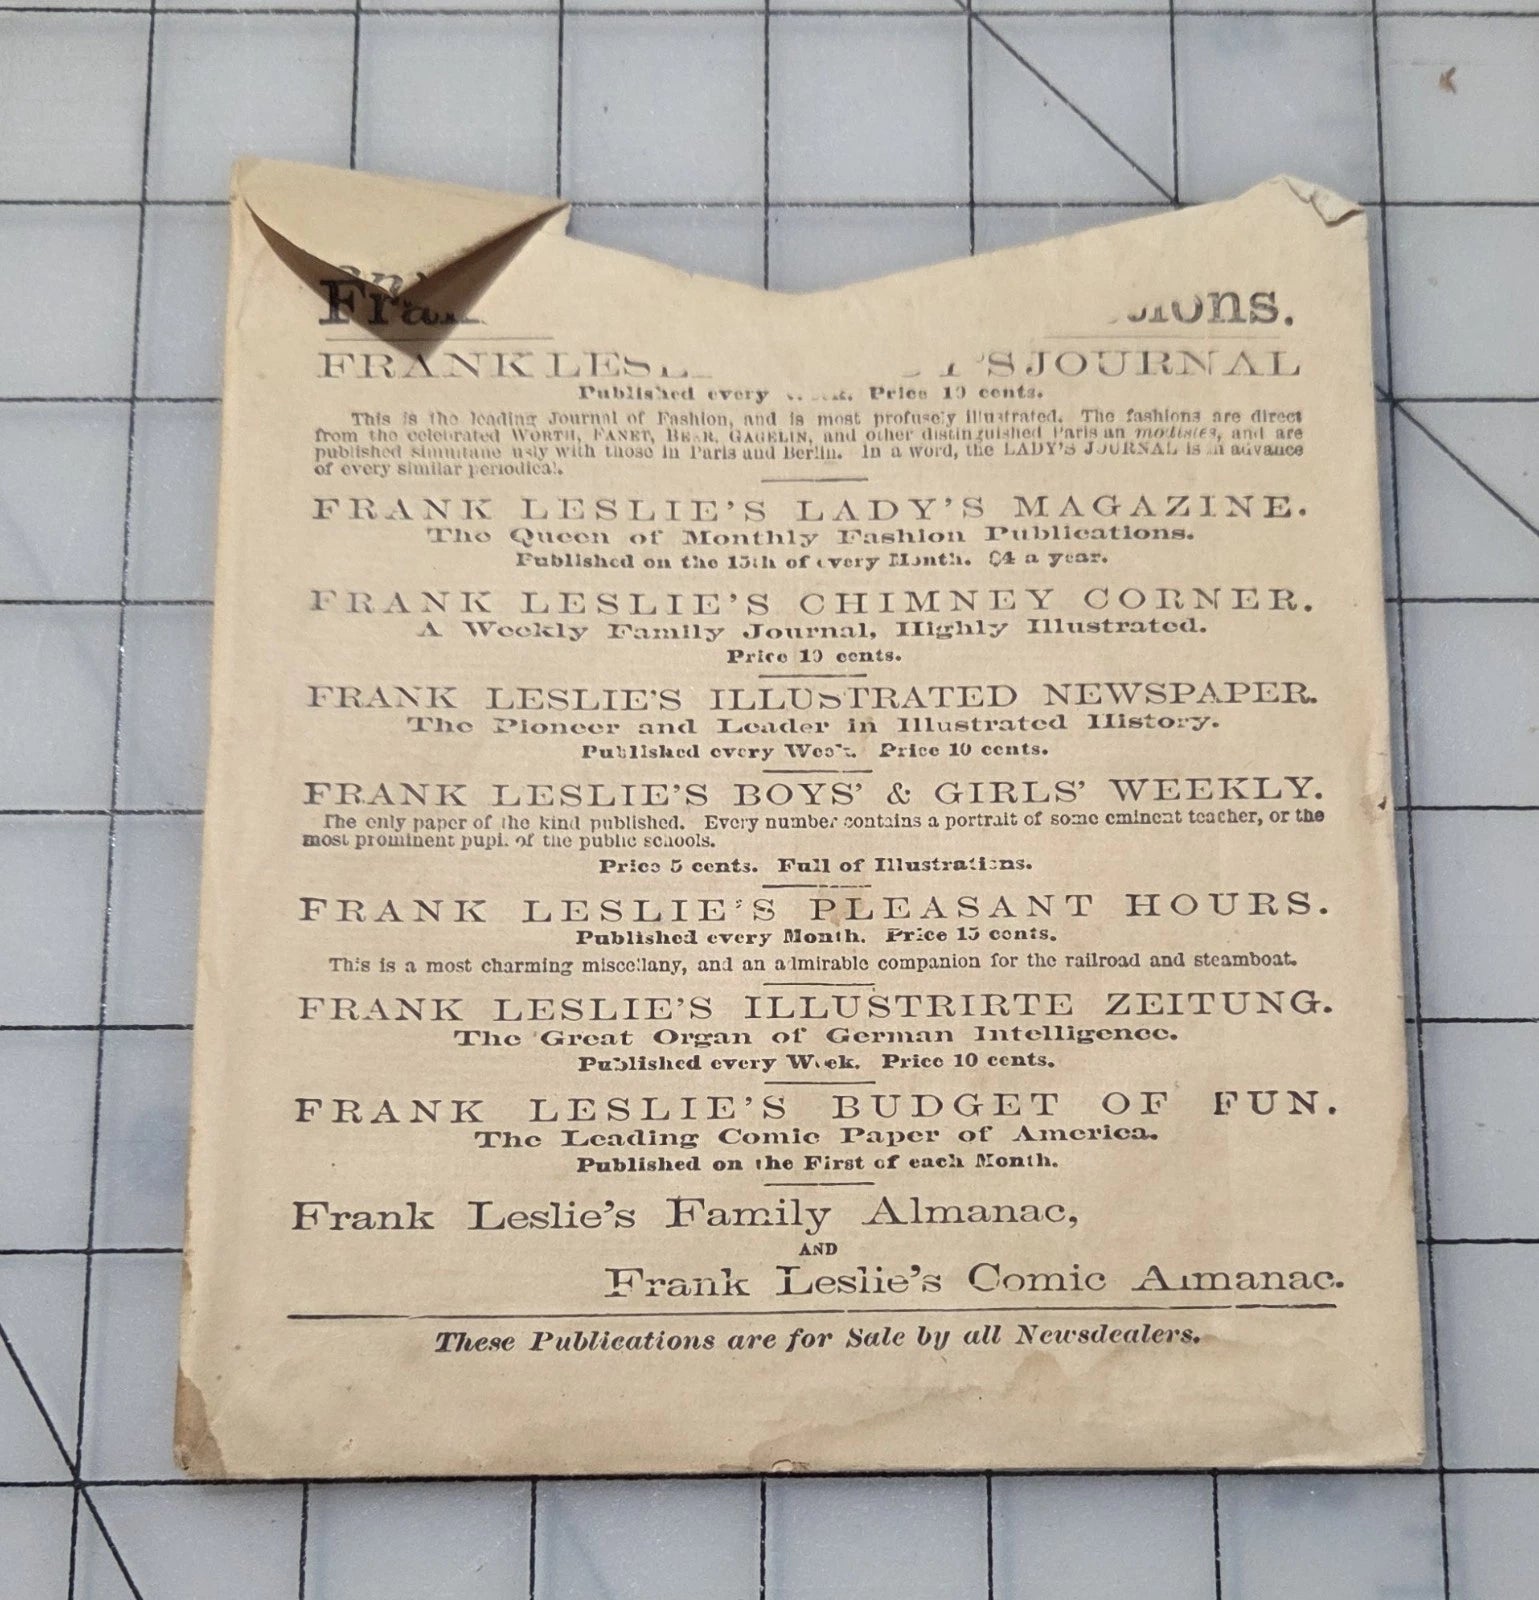 FRANK JOURNAL
Published every Price 10 cents.
This is the leading Journal of Fashion, and is most profusely illustrated. The fashions are direct
from the celebrated WORTH, FANET, GAGELIN, and other distinguished Parisian modistes, and are
published simultaneously with those in Paris and Berlin. In a word, the LADY'S JOURNAL is in advance
of every similar periodical.
FRANK LESLIE'S LADY'S MAGAZINE.
The Queen of Monthly Fashion Publications.
Published on the 15th of every Month. $4 a year.
FRANK LESLIE'S CHIMNEY CORNER.
A Weekly Family Journal, Highly Illustrated.
Price 10 cents.
FRANK LESLIE'S ILLUSTRATED NEWSPAPER.
The Pioneer and Leader in Illustrated History.
Published every Week. Price 10 cents.
FRANK LESLIE'S BOYS' & GIRLS' WEEKLY.
The only paper of the kind published. Every number contains a portrait of some eminent teacher, or the
most prominent pupil of the public schools.
Price 5 cents. Full of Illustrations.
FRANK LESLIE'S PLEASANT HOURS.
Published every Month. Price 15 cents.
This is a most charming miscellany, and an admirable companion for the railroad and steamboat.
FRANK LESLIE'S ILLUSTRIRTE ZEITUNG.
The Great Organ of German Intelligence.
Published every Week. Price 10 cents.
FRANK LESLIE'S BUDGET OF FUN.
The Leading Comic Paper of America.
Published on the First of each Month.
Frank Leslie's Family Almanac,
AND
Frank Leslie's Comic Almanac.
These Publications are for Sale by all Newsdealers.